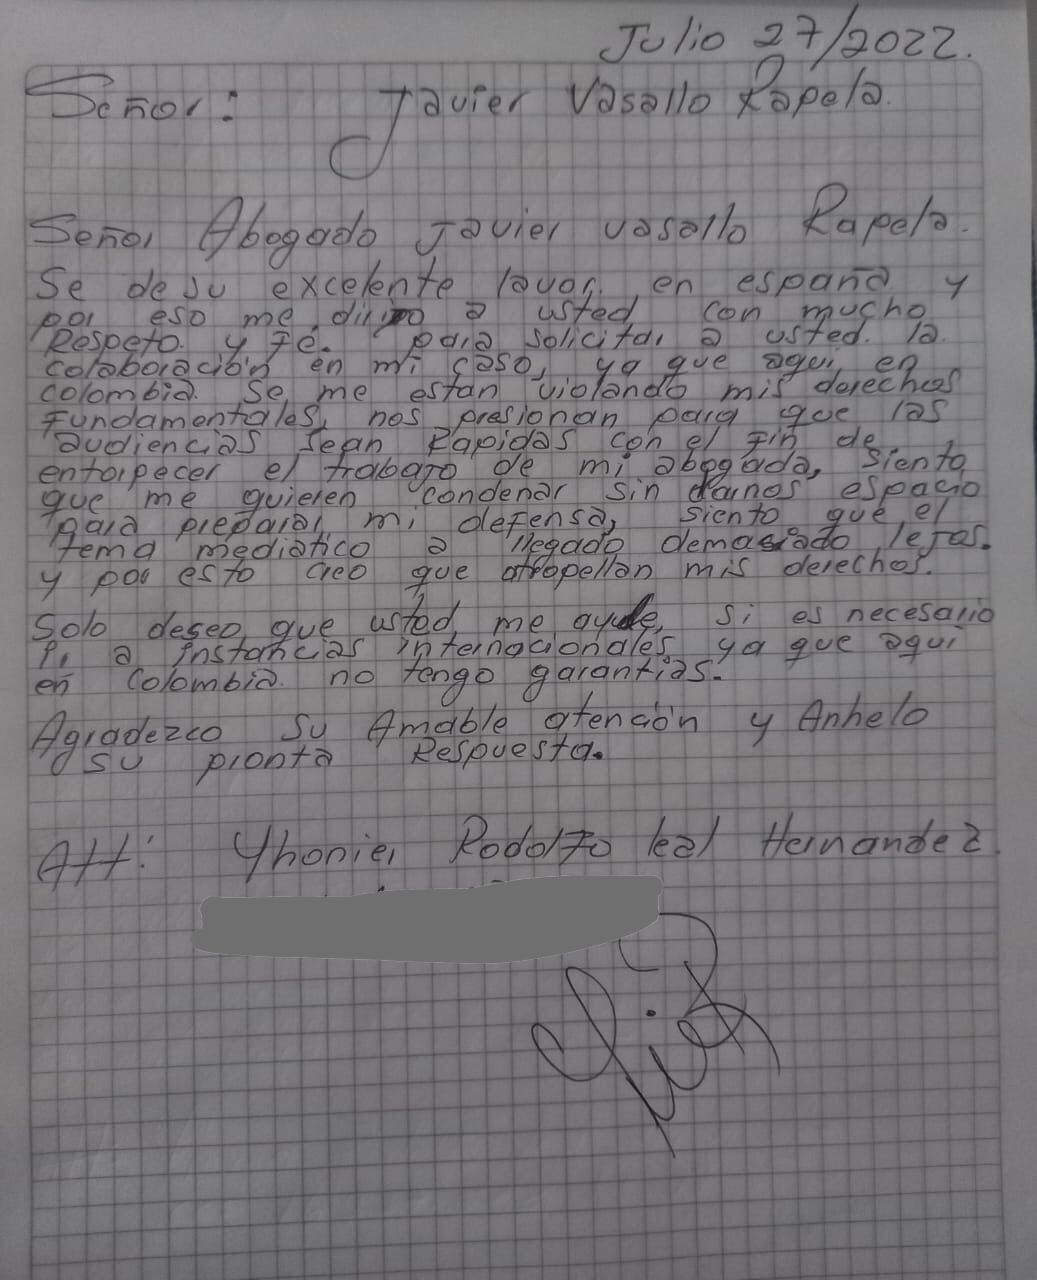 Julio 27/2022.
Señor: Javier Vasallo Rapela.
Señor Abogado Javier vasallo Rapela.
Se de su excelente lavor, en españa y
por eso me dirijo a usted con mucho
Respeto. y Fe. para solicitar a usted. la
colaboración en mi caso, ya que aqui en
colombia. Se me estan violando mis derechos
Fundamentales, nos presionan para que las
audiencias sean Rapidas con el Fin de
entorpecer el trabajo de mi abogada, siento
que me quieren condenar sin darnos espacio
para preparar mi defensa, siento que el
tema mediatico a llegado demasiado lejos.
y por esto creo que atropellan mis derechos.
Solo deseo que usted me ayude, si es necesario
Ir a instancias internacionales, ya que aqui
en Colombia. no tengo garantias.
Agradezco su Amable atención y Anhelo
su pronta Respuesta.
Att: Yhonier Rodolfo leal Hernandez.